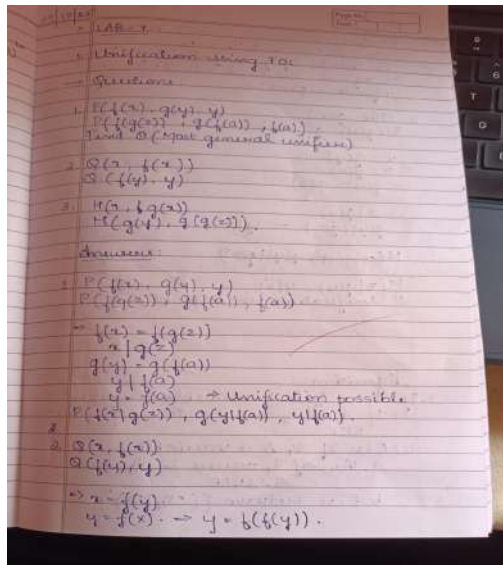 LAB-7
Unification using FOL
→ Questions
1. P(f(x), g(y), y)
P(f(g(z)), g(f(a)), f(a))
Find θ (Most general unifier)
2. Q(x, f(x))
Q(f(y), y)
3. H(x, f g(x))
H(g(y), g(g(z))).
Answers:
1. P(f(x), g(y), y)
P(f(g(z)), g(f(a)), f(a))
⇒ f(x) = f(g(z))
x | g(z)
g(y) = g(f(a))
y | f(a)
y = f(a) → Unification possible
P(f(x|g(z)), g(y|f(a)), y|f(a)).
2. Q(x, f(x))
Q(f(y), y)
⇒ x = f(y)
y = f(x). → y = f(f(y)).